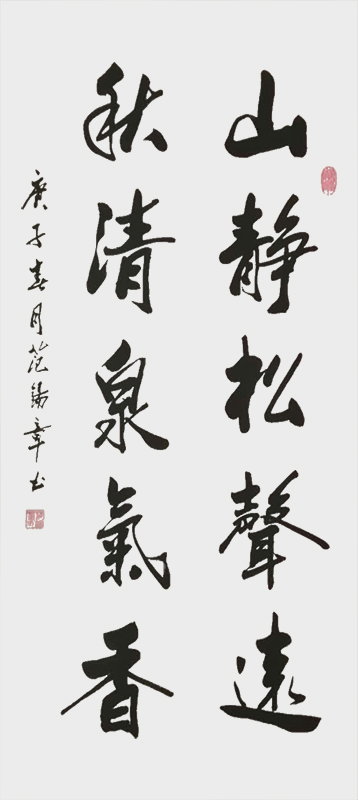 山靜松聲遠
秋清泉氣香
庚子春月范錫章书